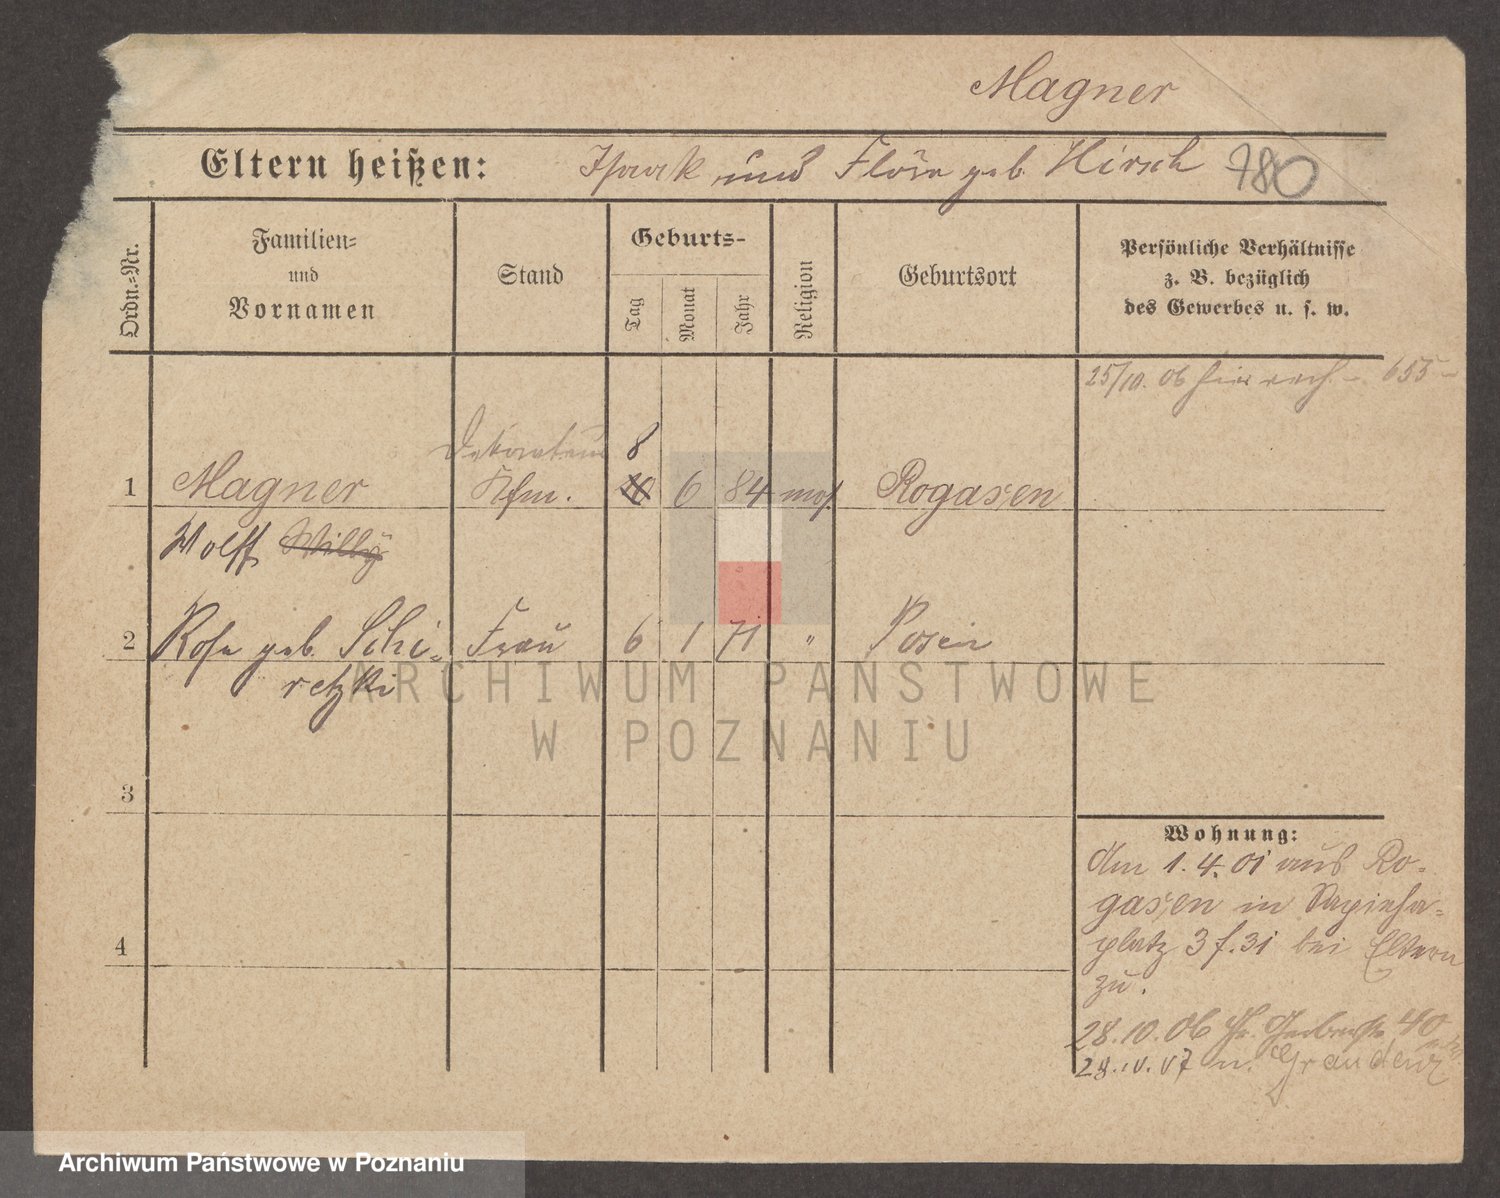 Magner
Eltern heißen: Isaak und Flora geb. Hirsch 780
Ordn.-Nr.
Familien-
und
Vornamen
Stand
Geburts-
Tag
Monat
Jahr
Religion
Geburtsort
Persönliche Verhältnisse
z. B. bezüglich
des Gewerbes u. s. w.
25/10. 06 hier 655
Dekorateur 8
1 Magner Kfm. 6 84 mos. Rogasen
Wolff Willy
2 Rosa geb. Schi- Frau 6 1 71 " Posen
retzki
3
4
Wohnung:
Am 1.4.01 aus Ro-
gasen in Sapieha-
platz 3 f. 31 bei Eltern
zu.
28.10.06 40
28.10.07 n. Graudenz
ARCHIWUM PAŃSTWOWE
W POZNANIU
Archiwum Państwowe w Poznaniu